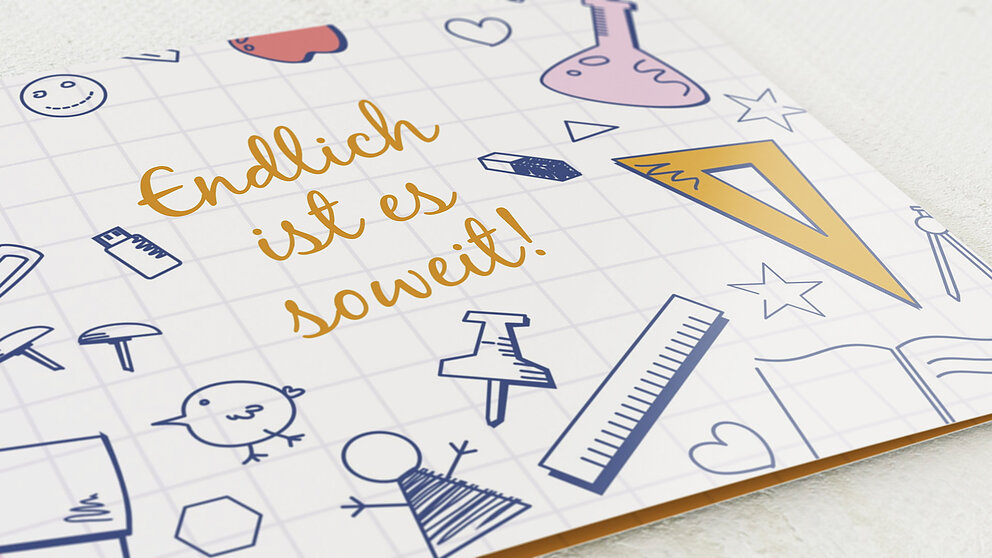 Endlich
ist es
soweit!